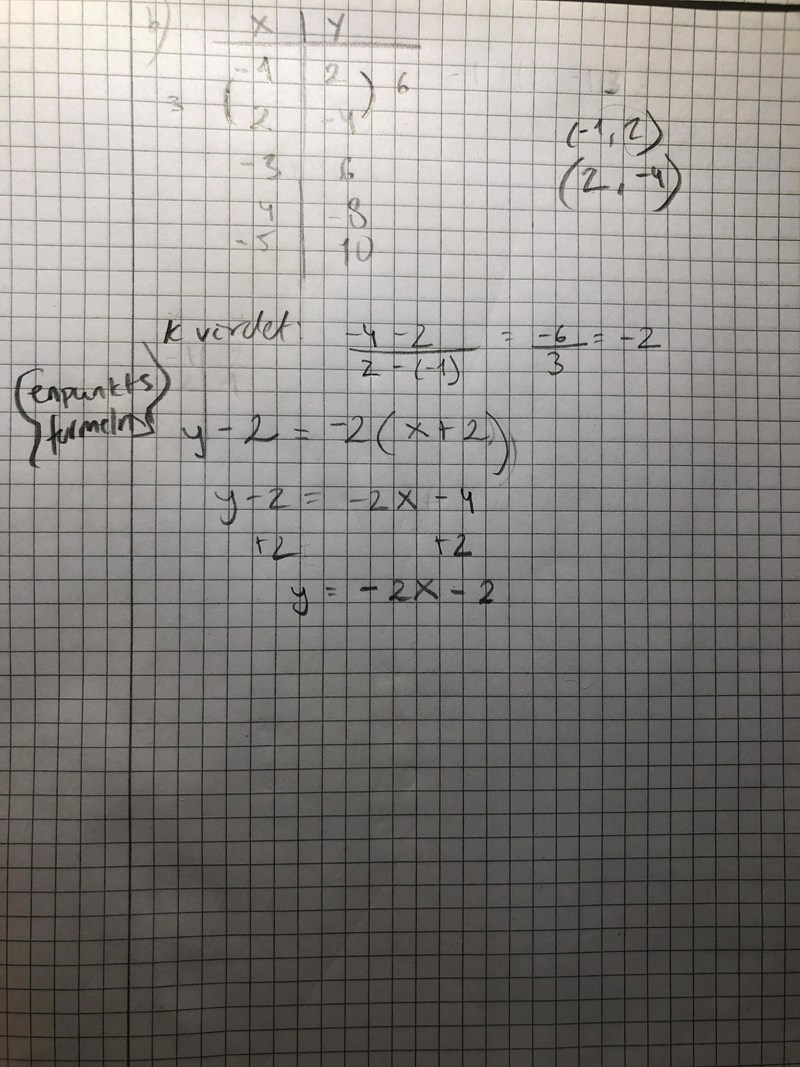 b) x | y
-1 | 2
3 ( ) 6
2 | -4
-3 | 6
4 | -8
-5 | 10
(-1, 2)
(2, -4)
k värdet: -4 -2 / 2 - (-1) = -6 / 3 = -2
(enpunkts
formeln)
y - 2 = -2(x + 2)
y - 2 = -2x - 4
+2 +2
y = -2x - 2